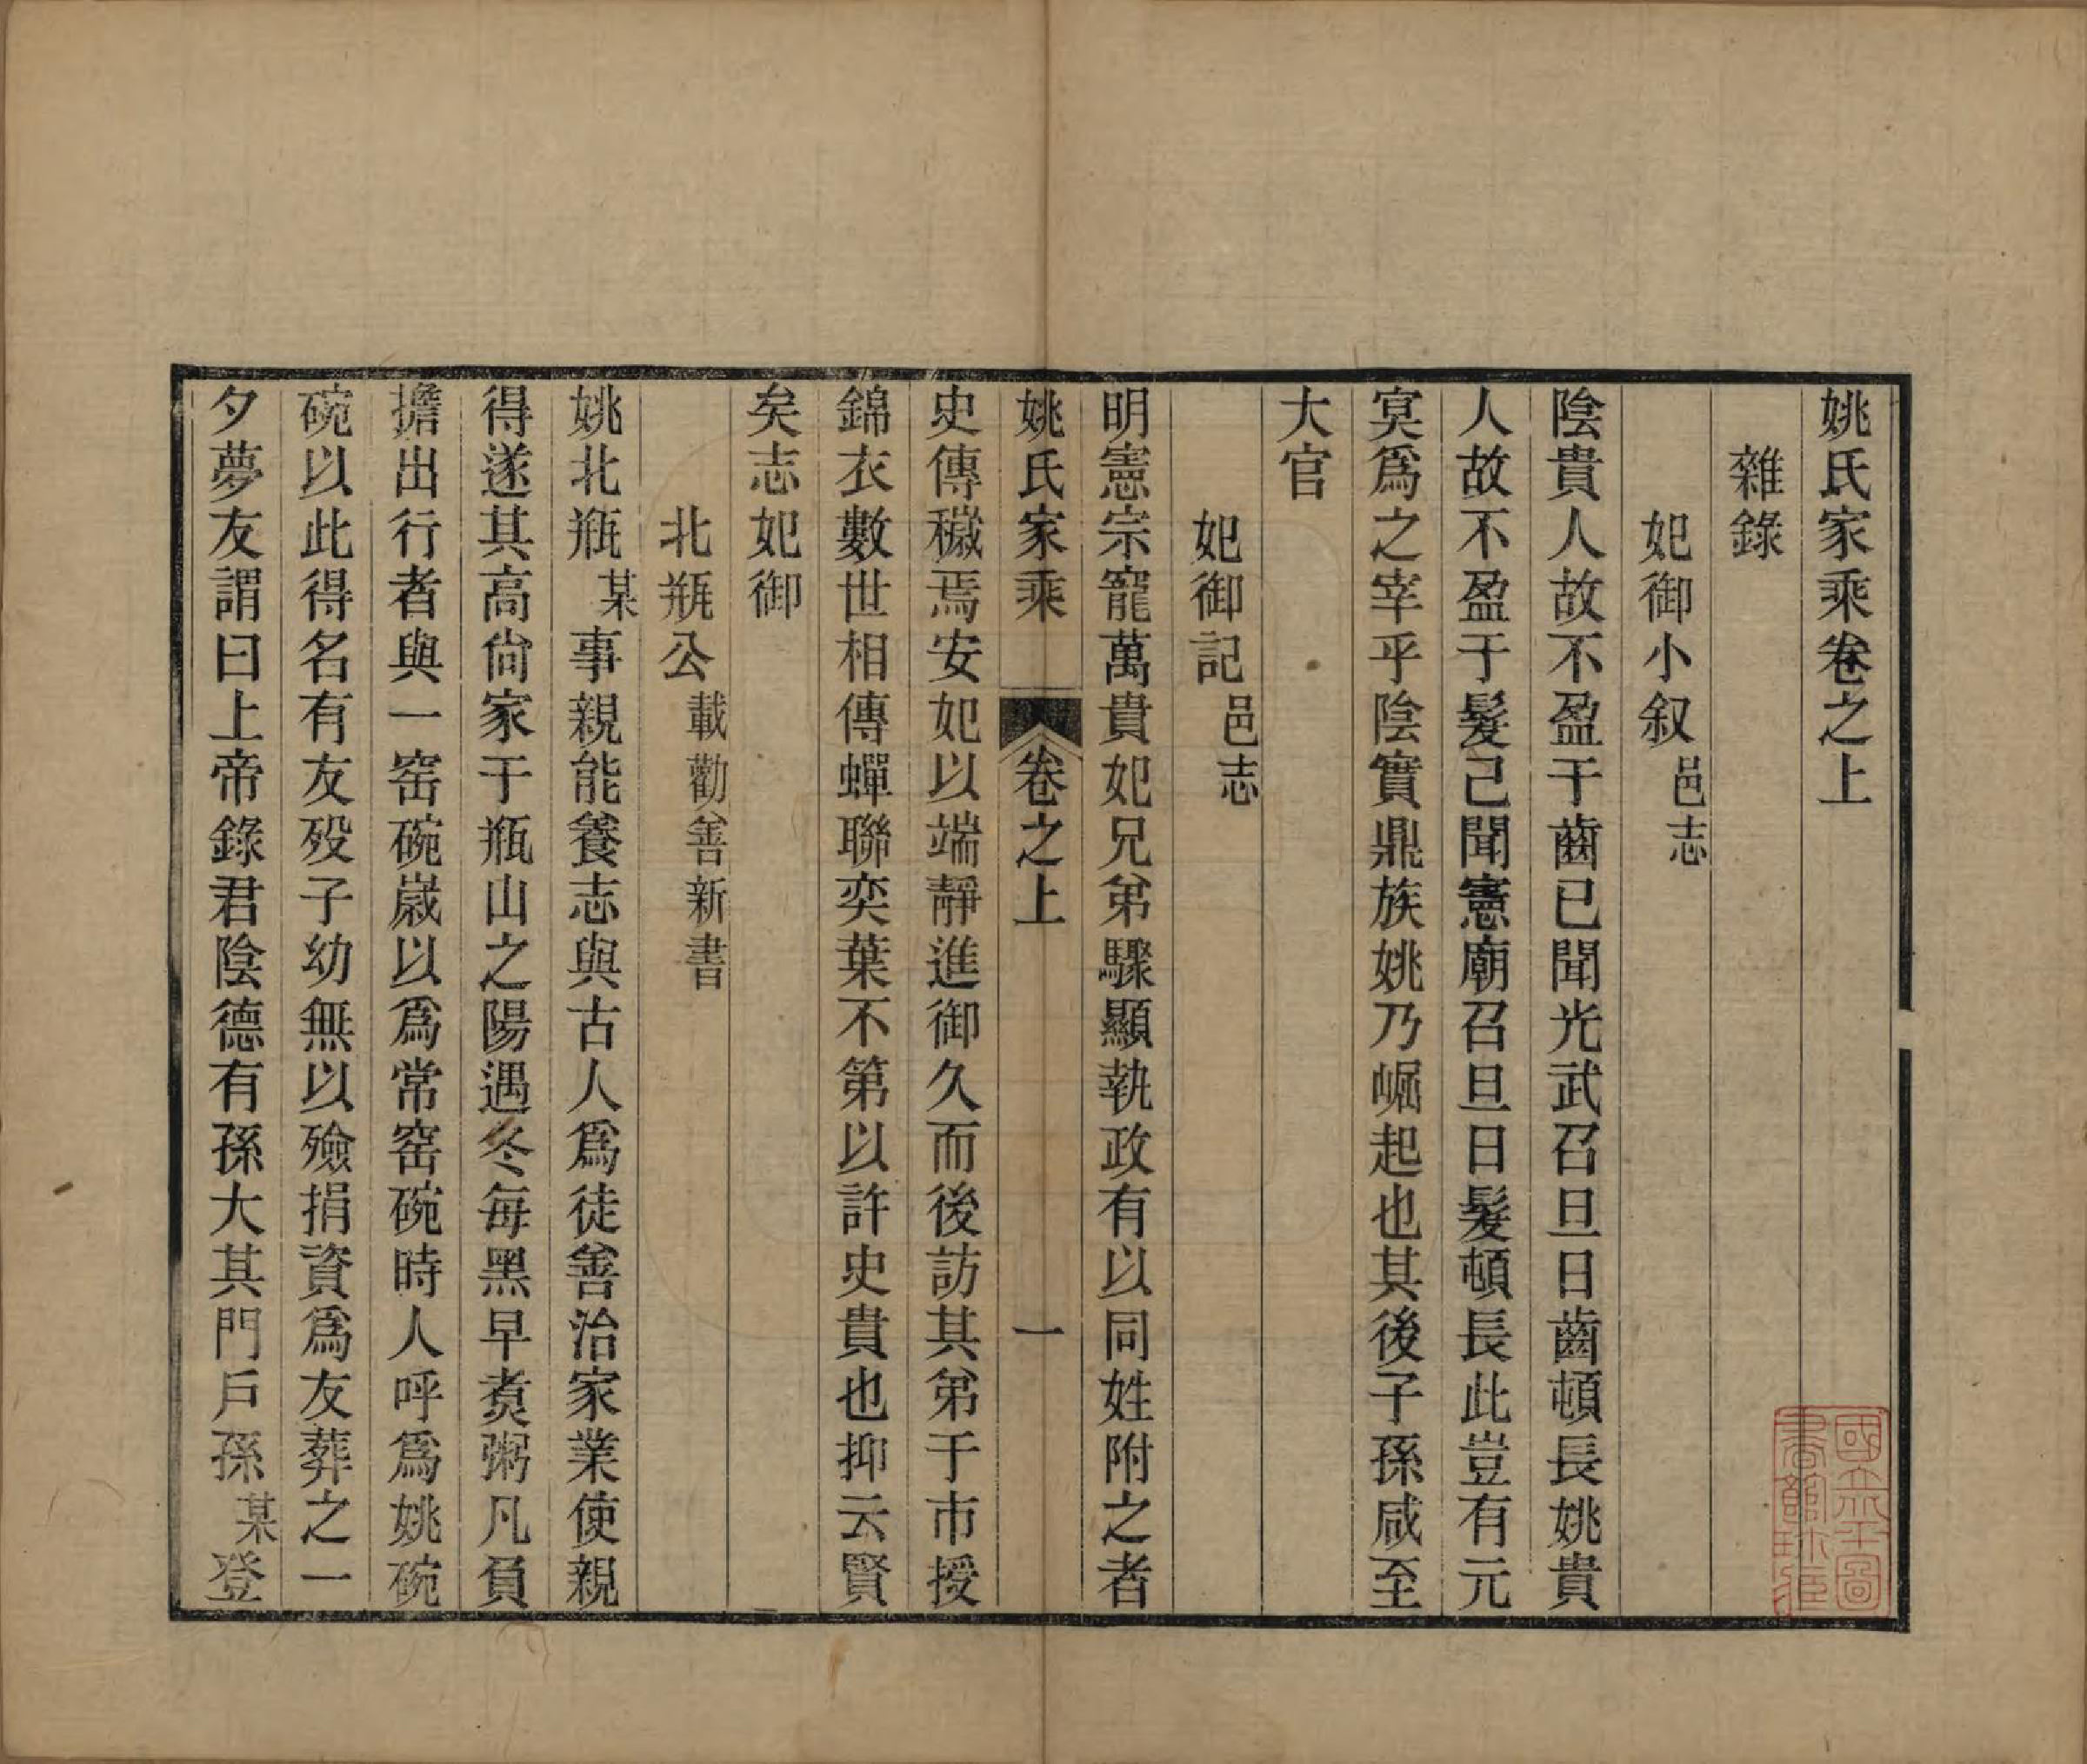 姚氏家乘卷之上
雜錄
妃御小叙邑志
陰貴人故不盈于齒已聞光武召旦日齒頓長姚貴
人故不盈于髮己聞憲廟召旦日髮頓長此豈有元
㝠爲之宰乎陰實鼎族姚乃崛起也其後子孫咸至
大官
妃御記邑志
明憲宗寵萬貴妃兄弟驟顯執政有以同姓附之者
姚氏家乘 卷之上 一
史傳穢焉安妃以端靜進御久而後訪其弟于市授
錦衣數世相傳蟬聯奕葉不第以許史貴也抑云賢
矣志妃御
北瓶公載勸善新書
姚北瓶某事親能養志與古人爲徒善治家業使親
得遂其高尙家于瓶山之陽遇冬每黑早煑粥凡負
擔出行者與一窑碗歲以爲常窑碗時人呼爲姚碗
碗以此得名有友歿子幼無以殮捐資爲友葬之一
夕夢友謂曰上帝錄君陰德有孫大其門戶孫某登
國立北平圖
書館珍藏